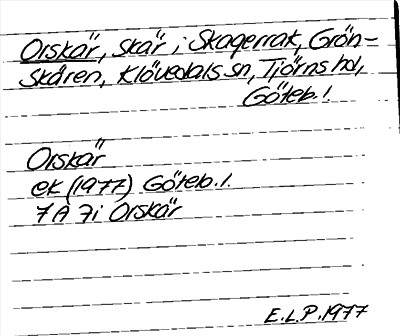 Orskär, skär i Skagerrak, Grön-
skåren, Klövedals sn, Tjörns hd,
Göteb. l.
Orskär
ek (1977) Göteb. l.
7 A 7i Orskär
E.L.P. 1977